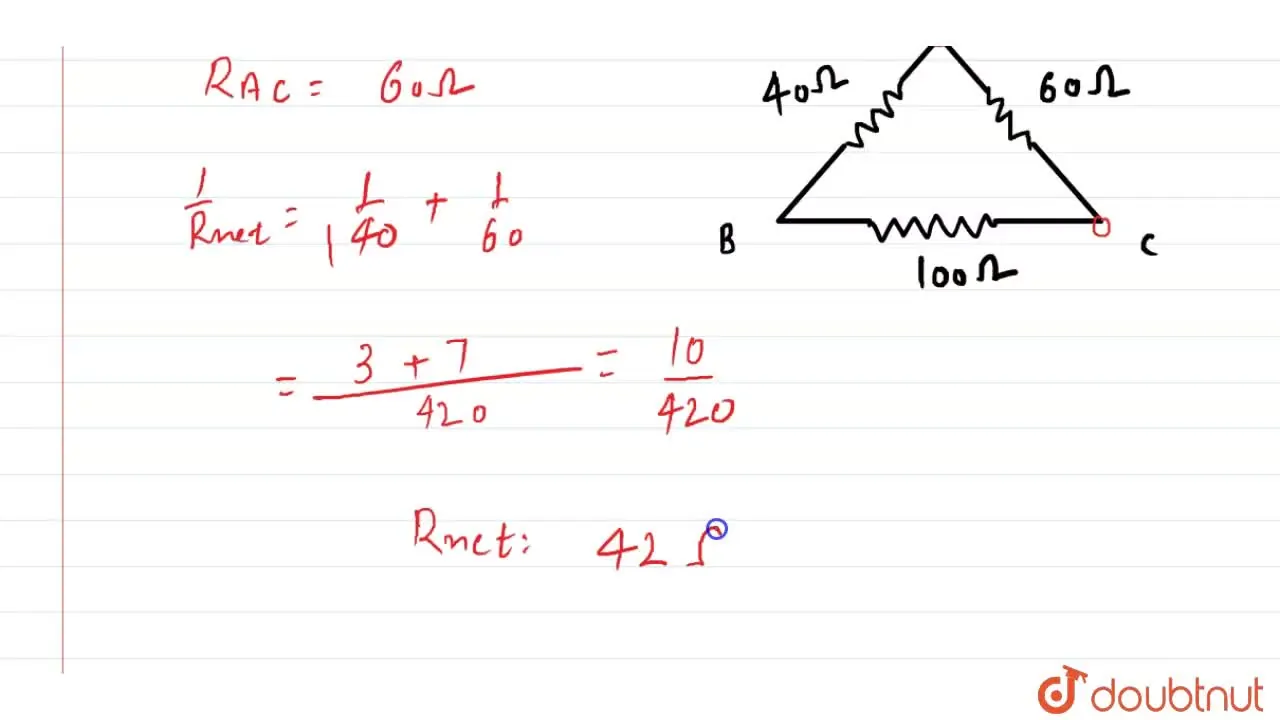 RAC = 60Ω
1/Rnet = 1/140 + 1/60
= 3 + 7/420 = 10/420
Rnet: 42 Ω
40Ω
60Ω
B
C
100Ω
doubtnut